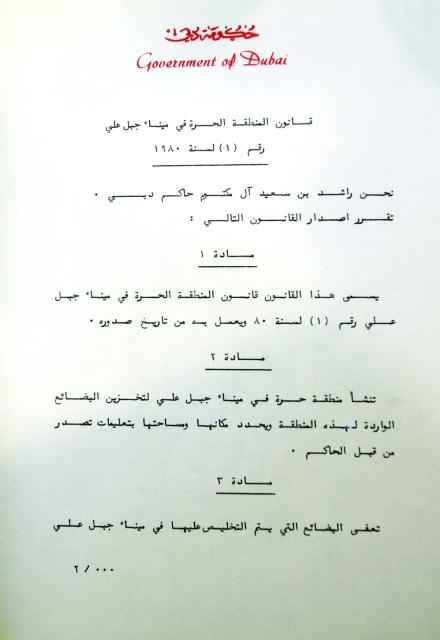 حكومة دبي
Government of Dubai
قانون المنطقة الحرة في ميناء جبل علي
رقم (١) لسنة ١٩٨٠
نحن راشد بن سعيد آل مكتوم حاكم دبي .
نقرر اصدار القانون التالي :
مادة ١
يسمى هذا القانون قانون المنطقة الحرة في ميناء جبل
علي رقم (١) لسنة ٨٠ ويعمل به من تاريخ صدوره .
مادة ٢
تنشأ منطقة حرة في ميناء جبل علي لتخزين البضائع
الواردة لهذه المنطقة ويحدد مكانها ومساحتها بتعليمات تصدر
من قبل الحاكم .
مادة ٣
تعفى البضائع التي يتم التخليص عليها في ميناء جبل علي
٢ / ٠٠٠